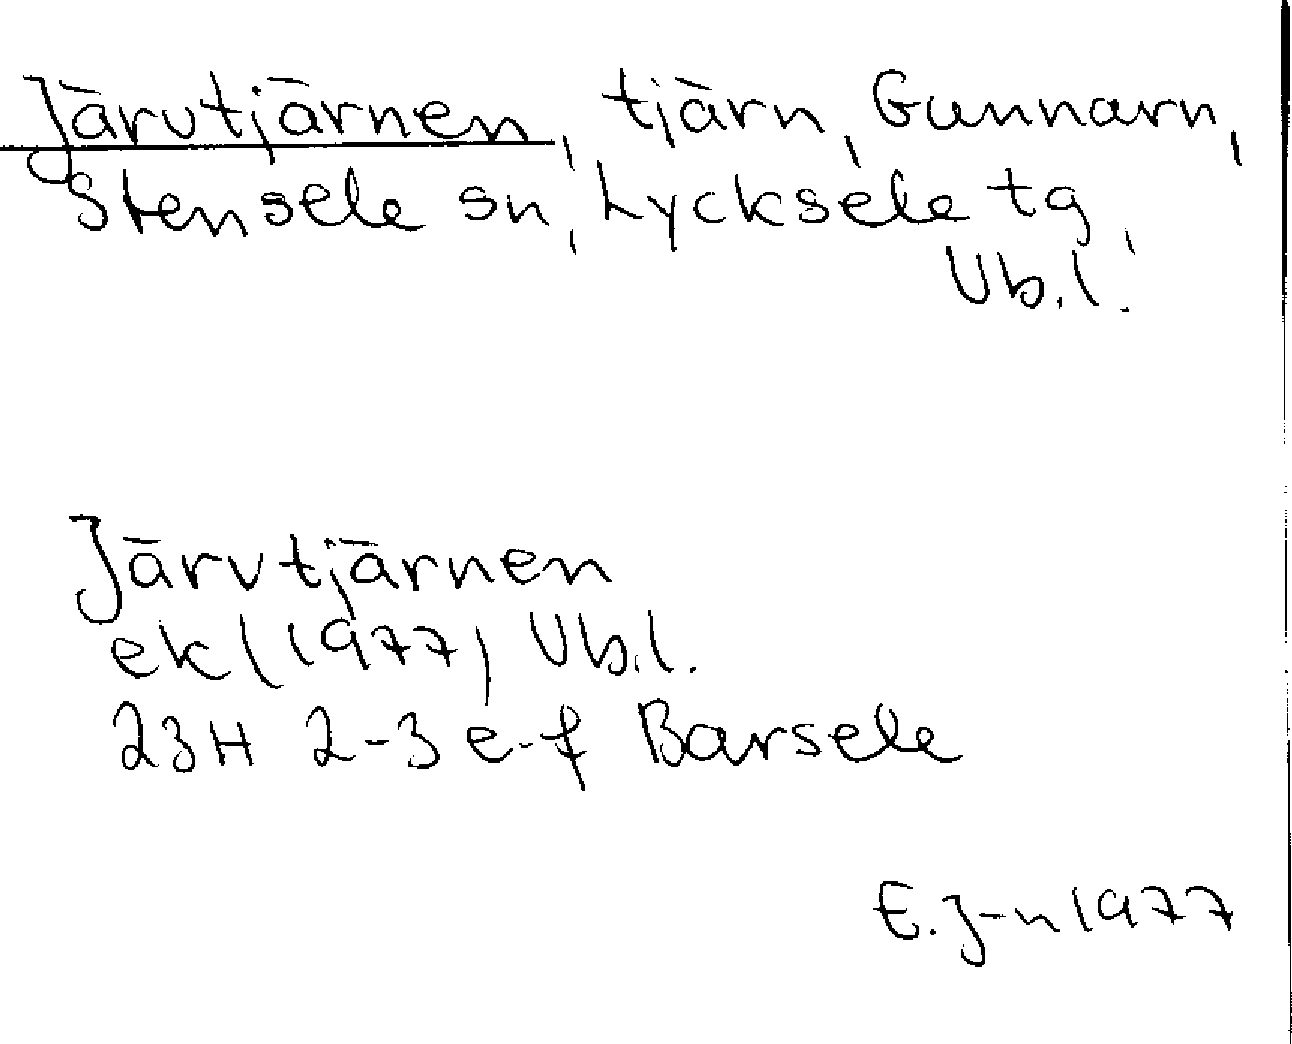 Järvtjärnen, tjärn, Gunnarn,
Stensele sn, Lycksele tg,
Vb.l.
Järvtjärnen
ek (1977) Vb.l.
23H 2-3 e-f Barsele
E.J-n 1977